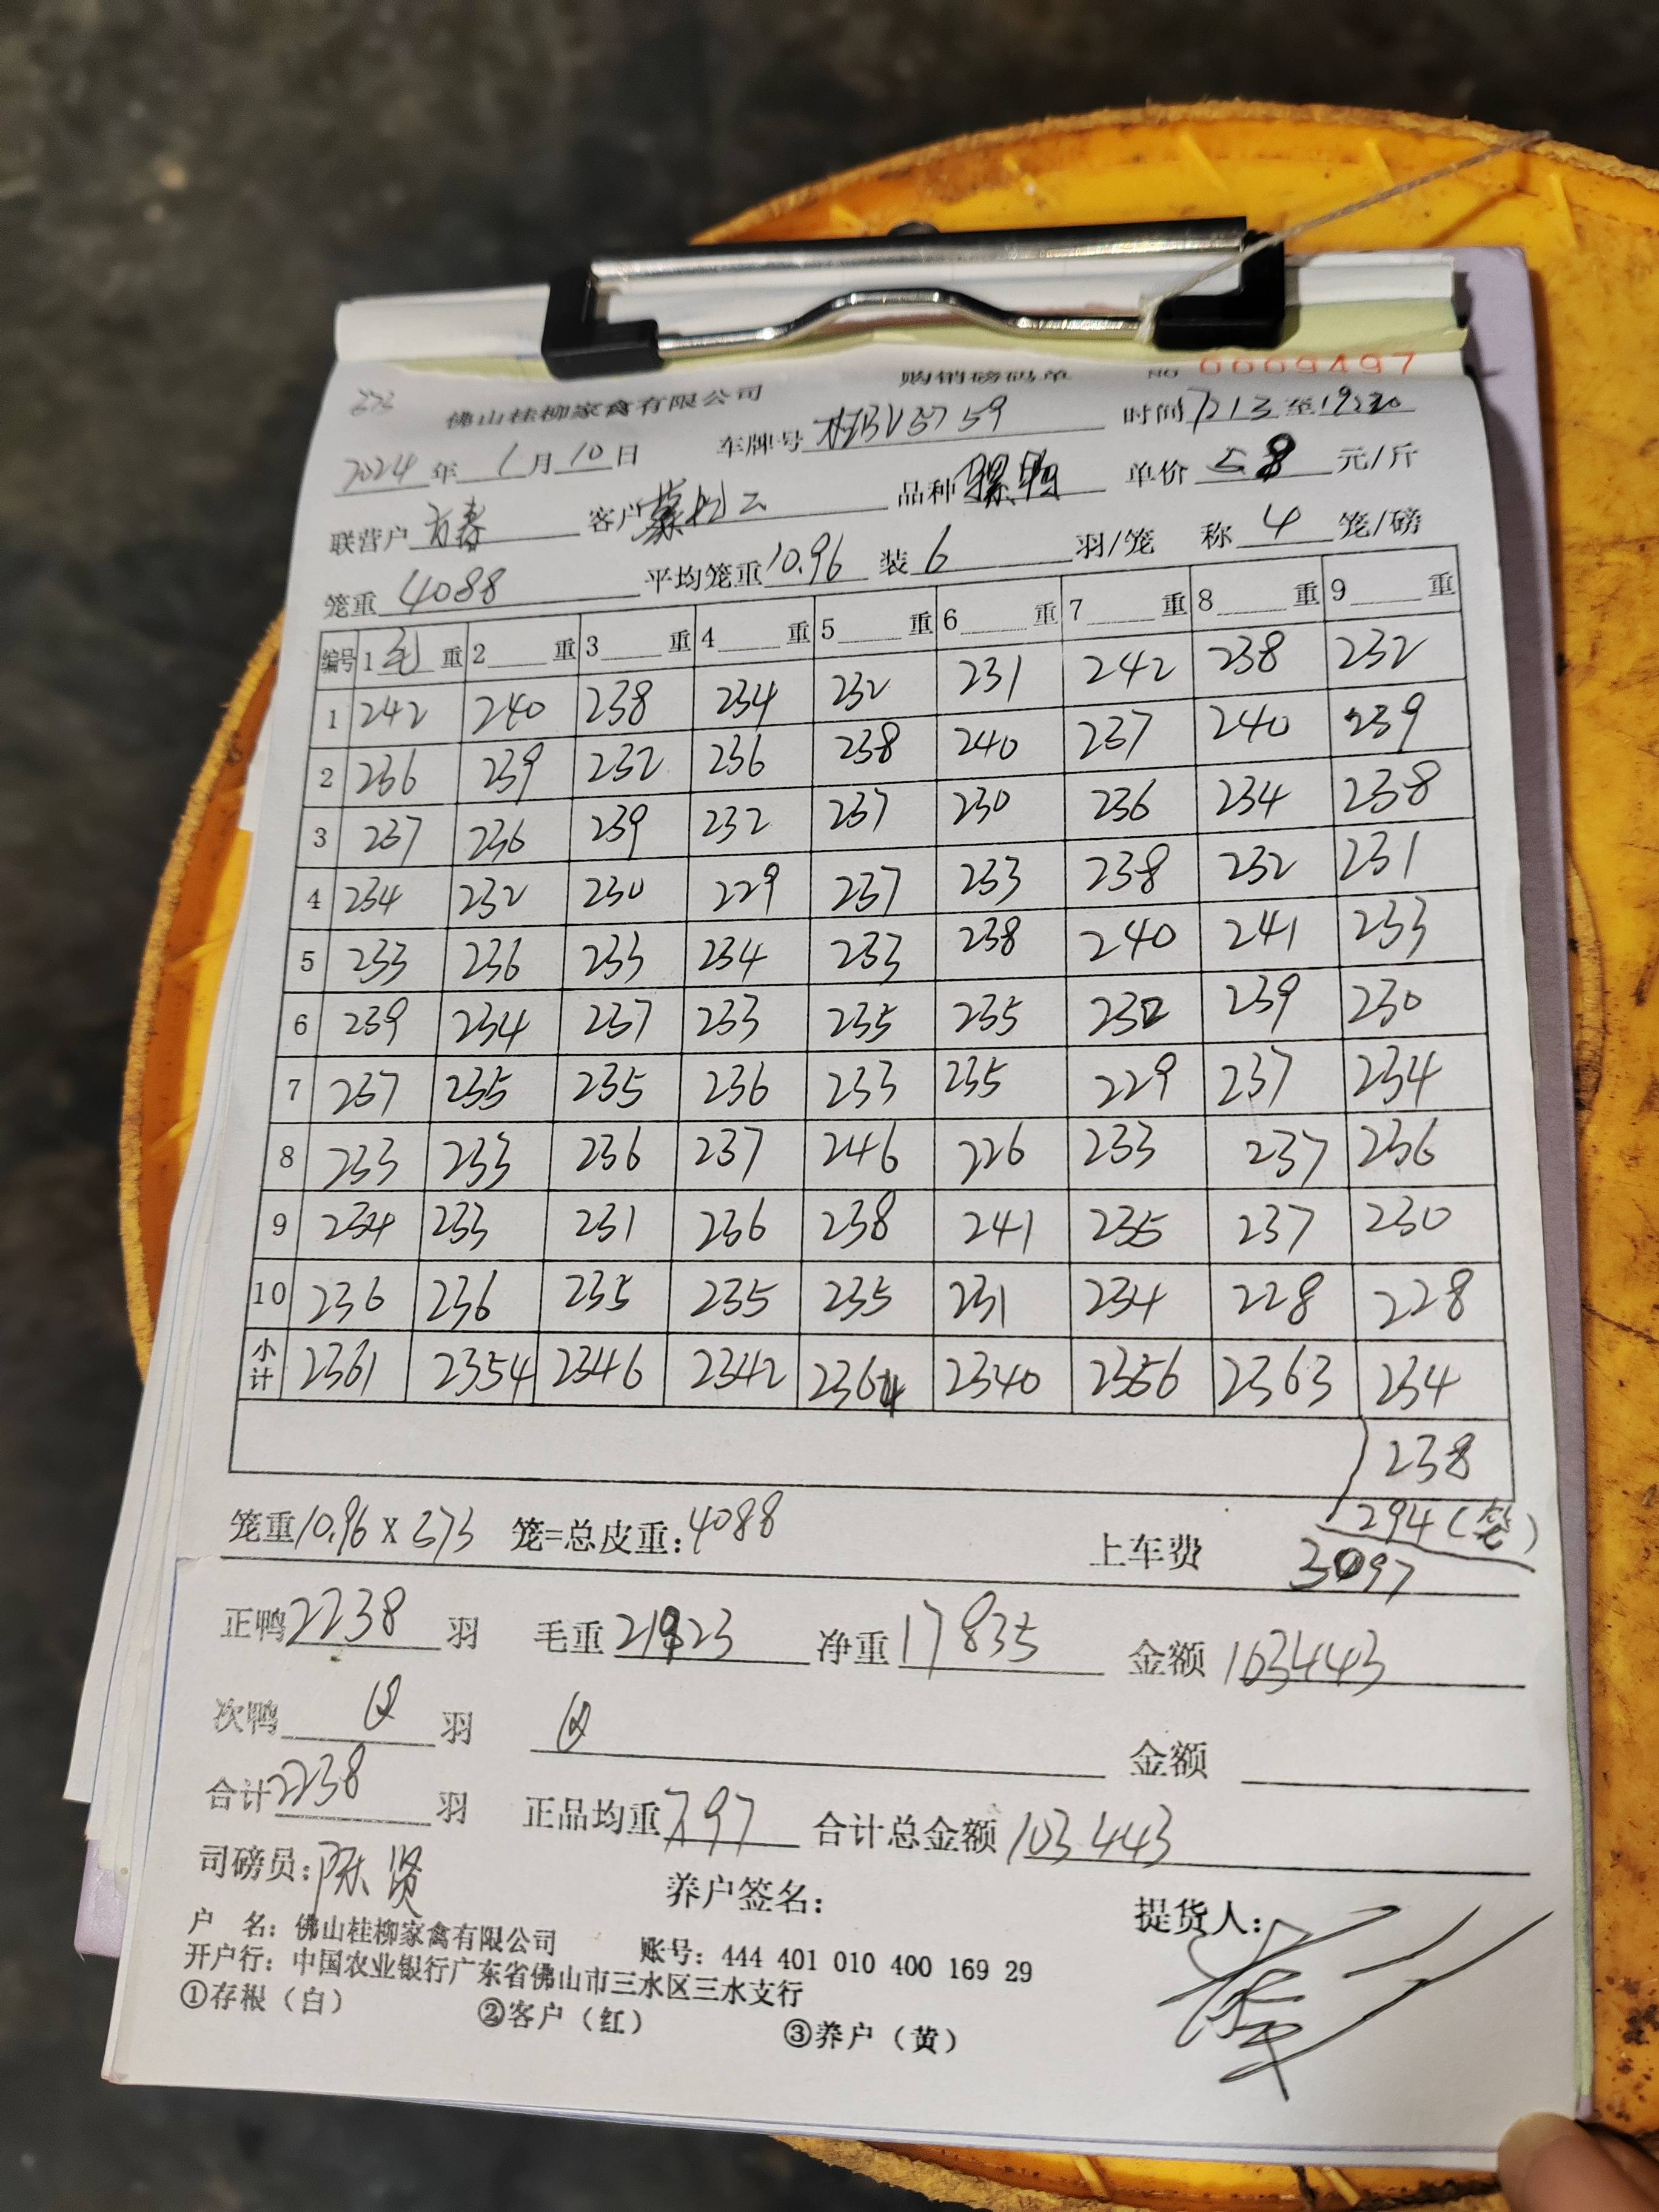 佛山桂柳家禽有限公司 购销磅码单 No 0009497
373
2024年1月10日 车牌号 时间 至19:20
联营户 客户 品种骡鸭 单价5.8元/斤
笼重4088 平均笼重10.96 装6羽/笼 称4笼/磅
编号 1毛重 2重 3重 4重 5重 6重 7重 8重 9重
1 242 240 238 234 232 231 242 238 232
2 236 239 232 236 238 240 237 240 239
3 237 236 239 232 237 230 236 234 238
4 234 232 230 229 237 233 238 232 231
5 233 236 233 234 233 238 240 241 233
6 239 234 237 233 235 235 232 239 230
7 237 235 235 236 233 235 229 237 234
8 233 233 236 237 246 226 233 237 236
9 234 233 231 236 238 241 235 237 230
10 236 236 235 235 235 231 234 228 228
小计 2361 2354 2346 2342 2364 2340 2356 2363 234
238
294(笼)
笼重10.96X373笼=总皮重:4088 上车费 3097
正鸭2238羽 毛重21923 净重17835 金额103443
次鸭0羽 0 金额
合计2238羽 正品均重7.97 合计总金额103443
司磅员:陈贤 养户签名: 提货人:
户 名:佛山桂柳家禽有限公司 账号:444 401 010 400 169 29
开户行:中国农业银行广东省佛山市三水区三水支行
①存根(白) ②客户(红) ③养户(黄)